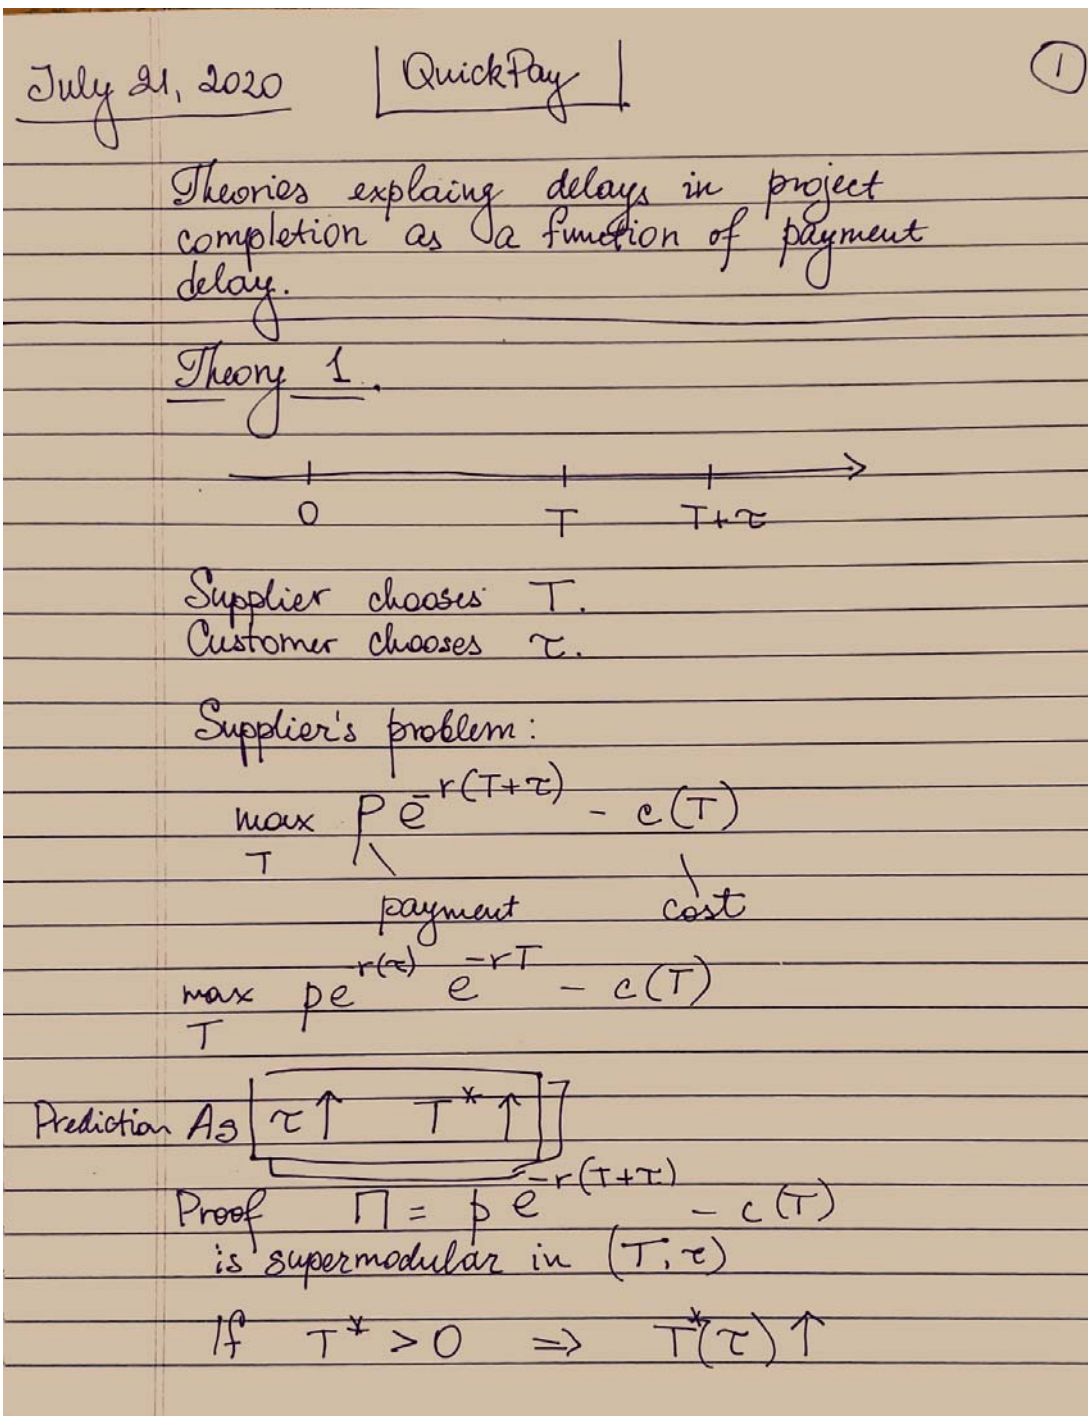 July 21, 2020 QuickPay 1
Theories explaing delays in project
completion as a function of payment
delay.
Theory 1.
0 T T+τ
Supplier chooses T.
Customer chooses τ.
Supplier's problem:
max P e^{-r(T+τ)} - c(T)
T
payment cost
max pe^{-r(τ)} e^{-rT} - c(T)
T
Prediction As τ↑ T*↑
Proof Π = p e^{-r(T+τ)} - c(T)
is supermodular in (T, τ)
If T* > 0 ⇒ T*(τ)↑